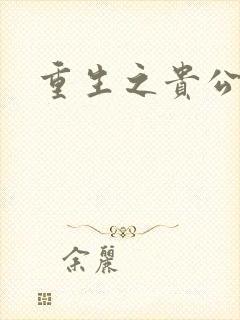 重生之貴公
余麗